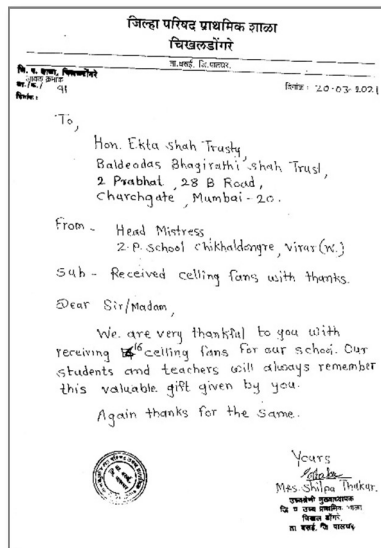 जिल्हा परिषद प्राथमिक शाळा
चिखलडोंगरे
ता.वसई. जि.पालघर.
जि. प. शाळा, चिखलडोंगरे
जावक क्रमांक
जा./क./ 91
दिनांक:
दिनांक: 20-03-2021
To,
Hon. Ekta Shah Trusty,
Baldeodas Bhagirathi Shah Trust,
2 Prabhat, 28 B Road,
Charchgate, Mumbai-20.
From - Head Mistress
Z.P. School Chikhaldongre, Virar (W.)
Sub - Received celling fans with thanks.
Dear Sir/Madam,
We are very thankful to you with
receiving 16 celling fans for our school. Our
students and teachers will always remember
this valuable gift given by you.
Again thanks for the same.
Yours
Mrs. Shilpa Thakur.
उच्चश्रेणी मुख्याध्यापक
जि प उच्च प्राथमिक शाळा
चिखल डोंगरे,
ता वसई, जि पालघर